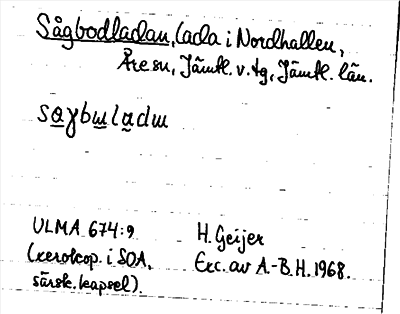 Sågbodladan, lada i Nordhallen,
Åre sn, Jämtl. v. tg, Jämtl. län.
sa̲ɣbɯ̲la̲dɯ
ULMA 674:9 H. Geijer
(xerokop. i SOA, Exc. av A.-B. H. 1968.
särsk. kapsel).